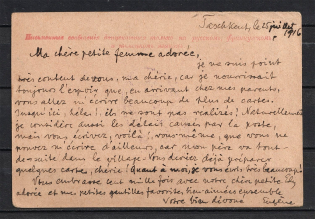 Taschkent, le 25 juillet
1916
Ma chère petite femme adorée,
je ne suis point
très content de vous, ma chérie, car je nourrissait
toujours l'espoir que, en arrivant chez mes parents,
vous allez m'écrire beaucoup de plus de cartes.
Jusqu'ici, hélas! ils ne sont pas réalisés! Naturellement,
je considère aussi les délais causés par la poste,
mais vous écrivez, voilà, vous-même, que vous ne
pouvez m'écrire d'ailleurs, car mon père va tout
de suite dans le village. Vous devriez déjà préparer
quelques cartes, chérie! Quant à moi, je vous écris très beaucoup!
Vous embrasse cent mille fois avec notre chère petite
adorée et mes petites gentilles favorites, bien-aimées ensemble
Votre bien dévoué Eugène